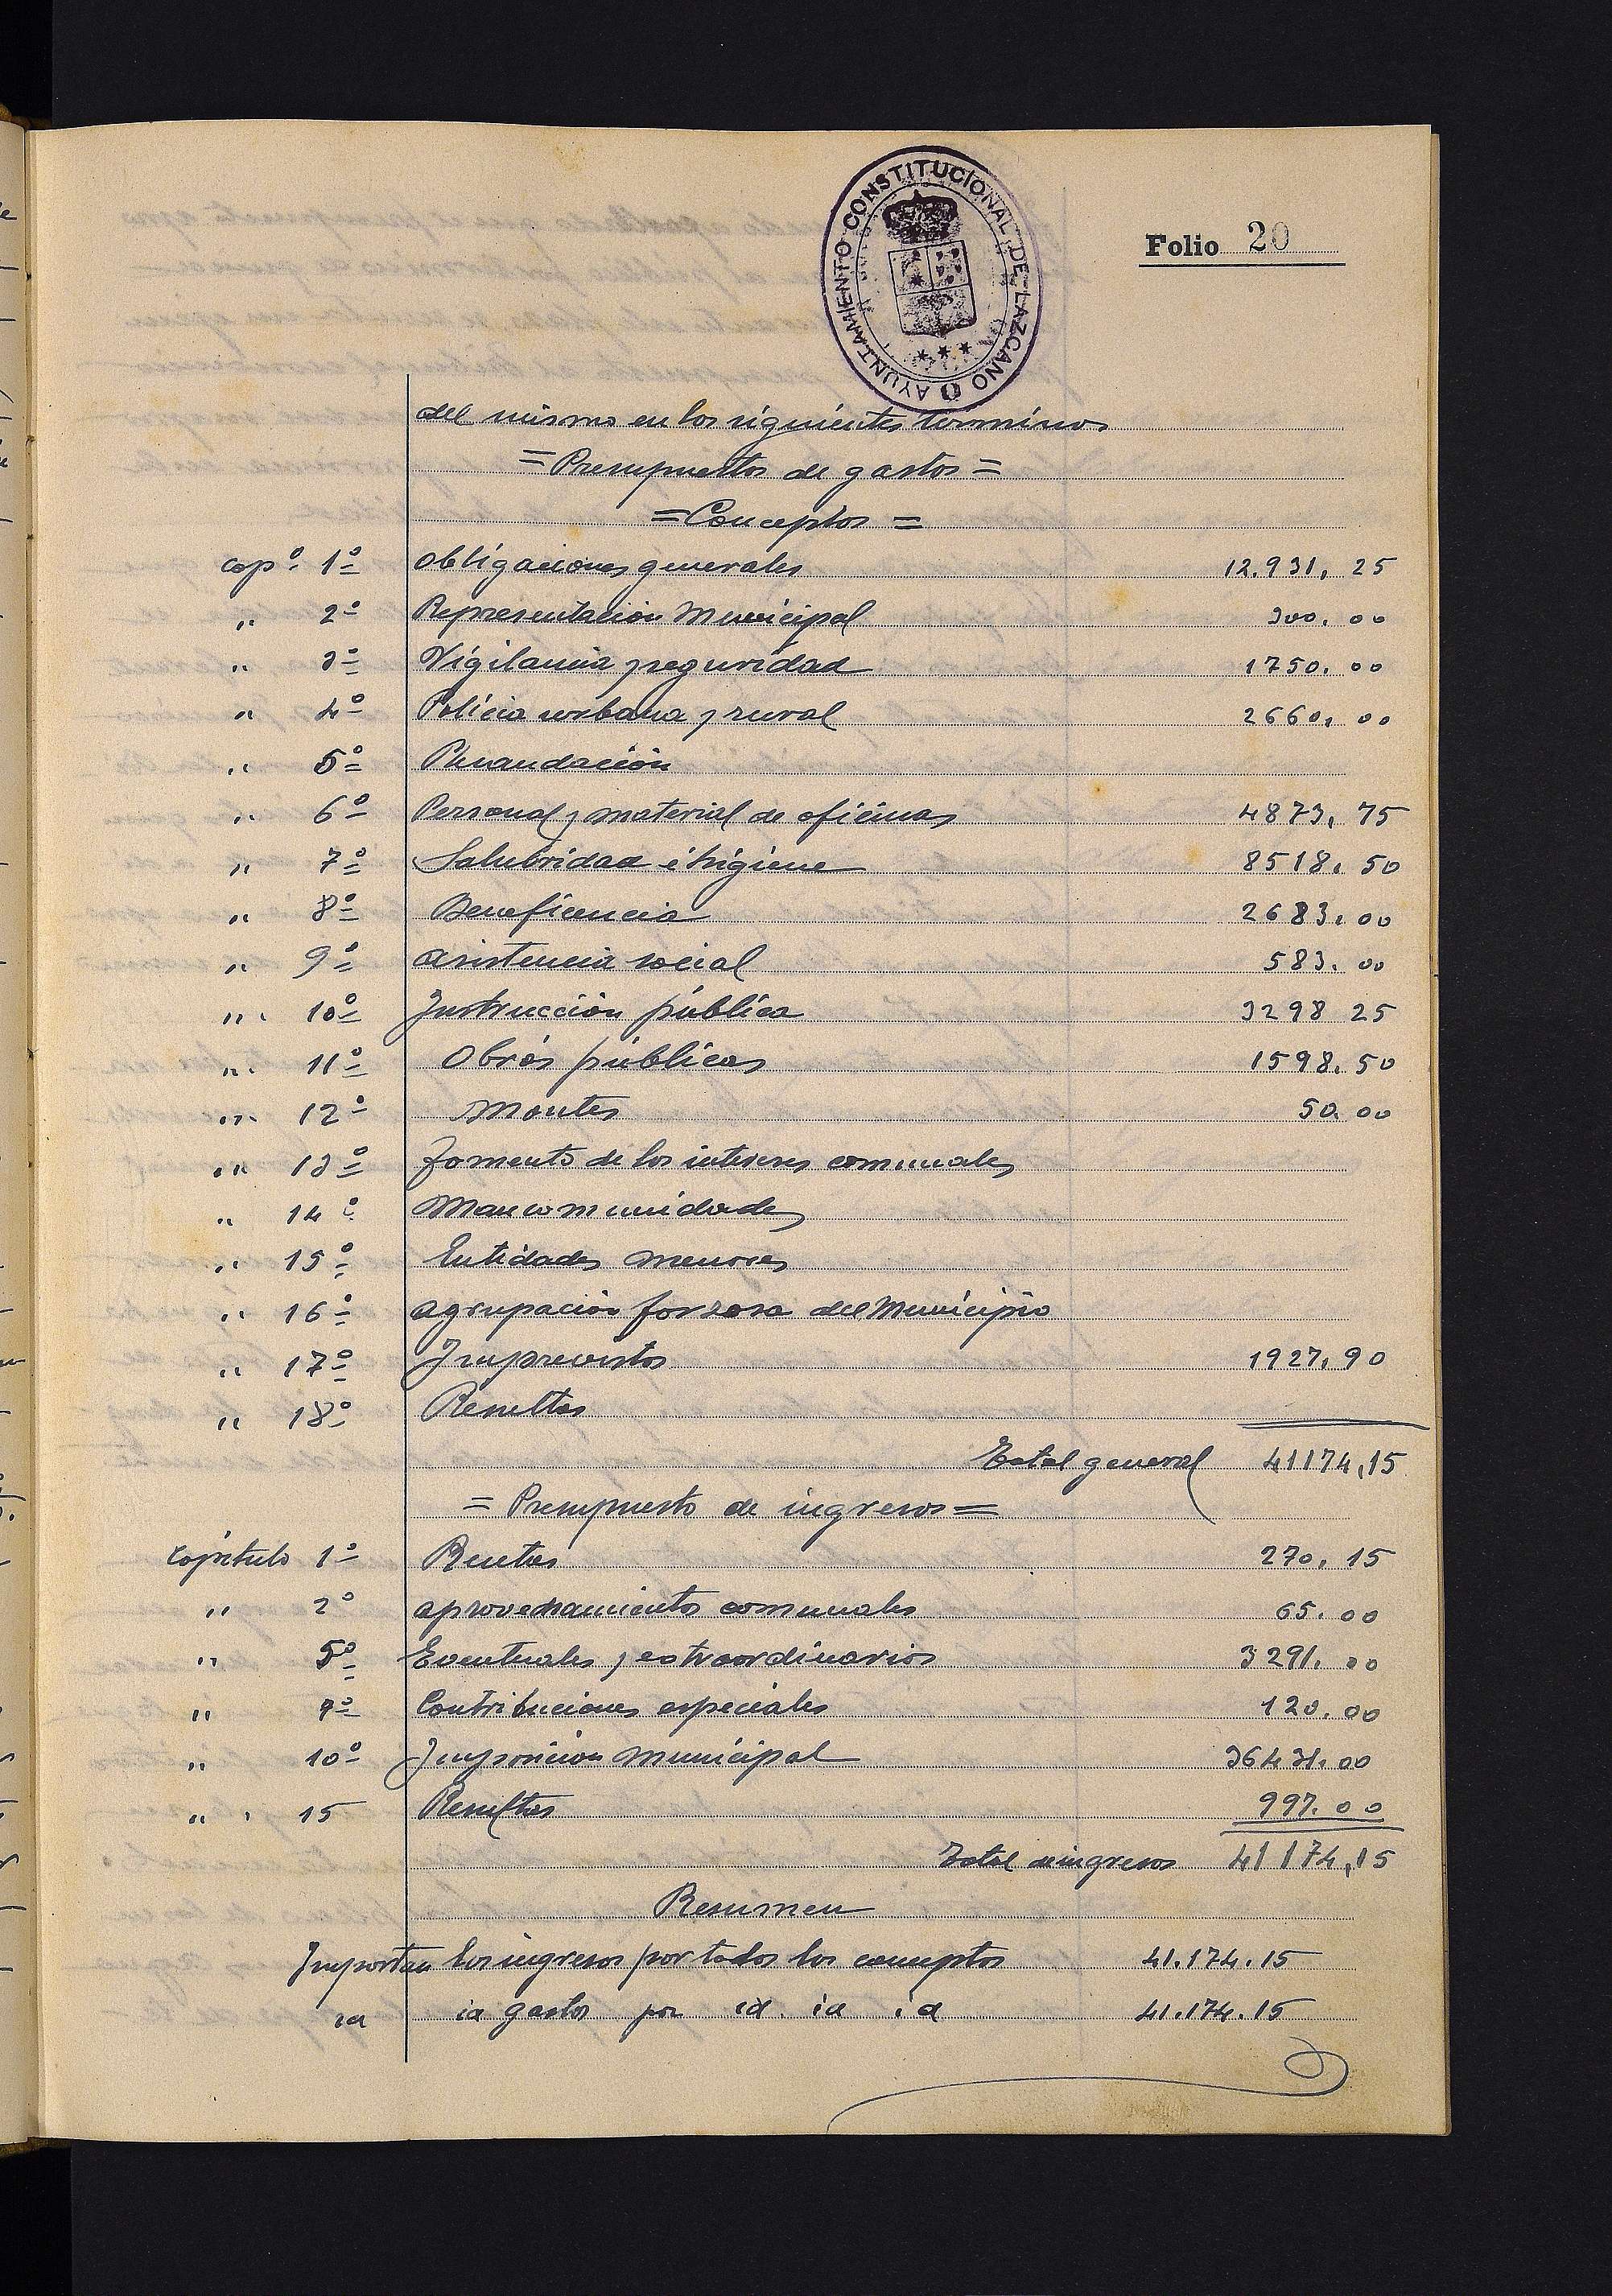 AYUNTAMIENTO CONSTITUCIONAL DE LAZCANO
Folio 20
del mismo en los siguientes términos
= Presupuestos de gastos =
= Conceptos =
capº 1º Obligaciones generales 12.931, 25
" 2º Representación Municipal 300. 00
" 3º Vigilancia y seguridad 1750. 00
" 4º Policia urbana y rural 2660, 00
" 5º Recaudación
" 6º Personal y material de oficinas 4873, 75
" 7º Salubridad é higiene 8518. 50
" 8º Beneficencia 2683. 00
" 9º asistencia social 583. 00
" 10º Instrucción pública 3298 25
" 11º Obras públicas 1598. 50
" 12º Montes 50. 00
" 13º fomento de los intereses comunales
" 14º Mancomunidades
" 15º Entidades menores
" 16º agrupación forzosa del Municipio
" 17º Imprevistos 1927, 90
" 18º Resultas
Total general 41174,15
= Presupuesto de ingresos =
Capítulo 1º Rentas 270, 15
" 2º aprovechamientos comunales 65. 00
" 5º Eventuales y extraordinarios 3291. 00
" 7º Contribuciones especiales 120. 00
" 10º Imposicion Municipal 36431. 00
" 15 Resultas 997. 00
Total de ingresos 41174,15
Resumen
Importan los ingresos por todos los conceptos 41.174.15
id id gastos por id. id id 41.174.15